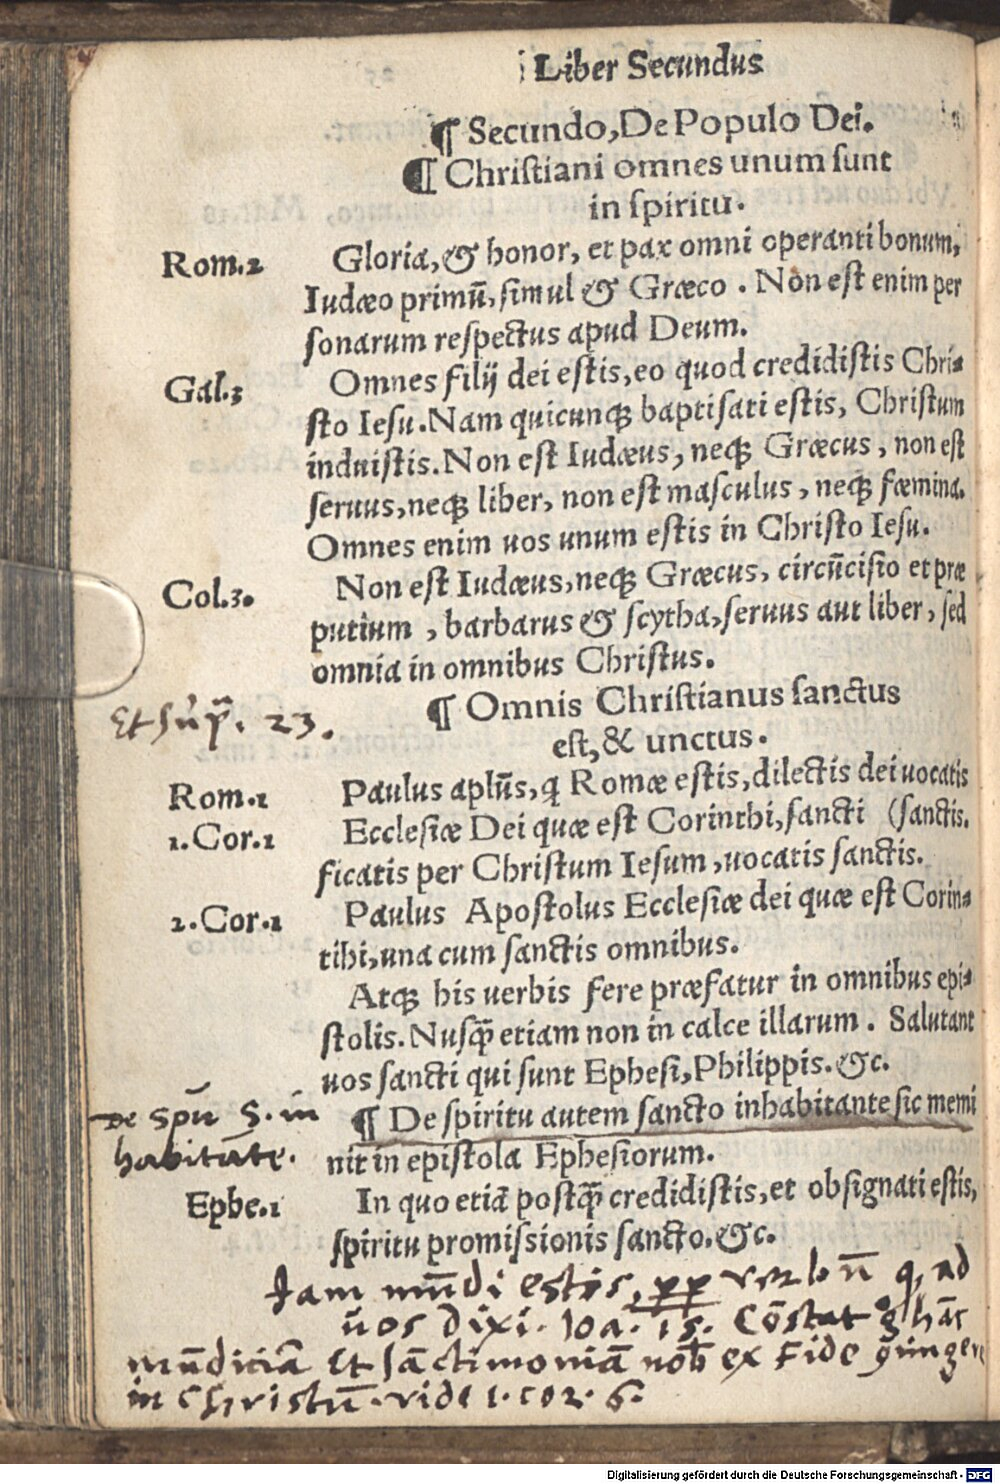 Liber Secundus
¶ Secundo, De Populo Dei.
¶ Chriſtiani omnes unum ſunt
in ſpiritu.
Rom.2 Gloria, & honor, et pax omni operanti bonum,
Iudæo primũ, ſimul & Græco. Non est enim per
ſonarum reſpectus apud Deum.
Gal.3 Omnes filij dei eſtis, eo quod credidiſtis Chri-
ſto Ieſu. Nam quicunqꝫ baptiſati eſtis, Chriſtum
induiſtis. Non eſt Iudæus, neqꝫ Græcus, non eſt
ſeruus, neqꝫ liber, non eſt maſculus, neqꝫ fœmina.
Omnes enim uos unum eſtis in Chriſto Ieſu.
Col.3. Non eſt Iudæus, neqꝫ Græcus, circũciſio et præ
putium, barbarus & ſcytha, ſeruus aut liber, ſed
omnia in omnibus Chriſtus.
Et Sup̃. 23.
¶ Omnis Chriſtianus ſanctus
eſt, & unctus.
Rom.1 Paulus apl̃us, qͥ Romæ eſtis, dilectis dei uocatis
1.Cor.1 Eccleſiæ Dei quæ eſt Corinthi, ſancti (ſanctis.
ficatis per Chriſtum Ieſum, uocatis ſanctis.
2.Cor.1 Paulus Apoſtolus Eccleſiæ dei quæ eſt Corin-
tihi, una cum ſanctis omnibus.
Atqꝫ his uerbis fere præfatur in omnibus epi-
ſtolis. Nuſq̃ etiam non in calce illarum. Salutant
uos ſancti qui ſunt Epheſi, Philippis. &c.
De spũ S. in
habitãte.
¶ De ſpiritu autem ſancto inhabitante ſic memi
nit in epiſtola Epheſiorum.
Ephe.1 In quo etiã poſtq̃ credidiſtis, et obſignati eſtis,
ſpiritu promiſſionis ſancto. &c.
Iam mũdi estis, ꝓꝑ verbũ q, ad
uos dixi. Ioa. 15. Cõstat g hãc
mũdiciã Et ſãctimoniã nob̃ ex Fide
in Christũ. vide 1. cor. 6.
Digitalisierung gefördert durch die Deutsche Forschungsgemeinschaft - DFG